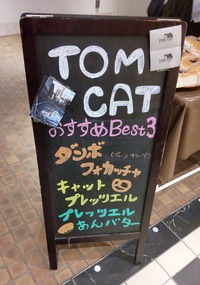 TOM
CAT
おすすめBest3
ダンボ
フォカッチャ
キャット
プレッツエル
プレッツエル
あんバター